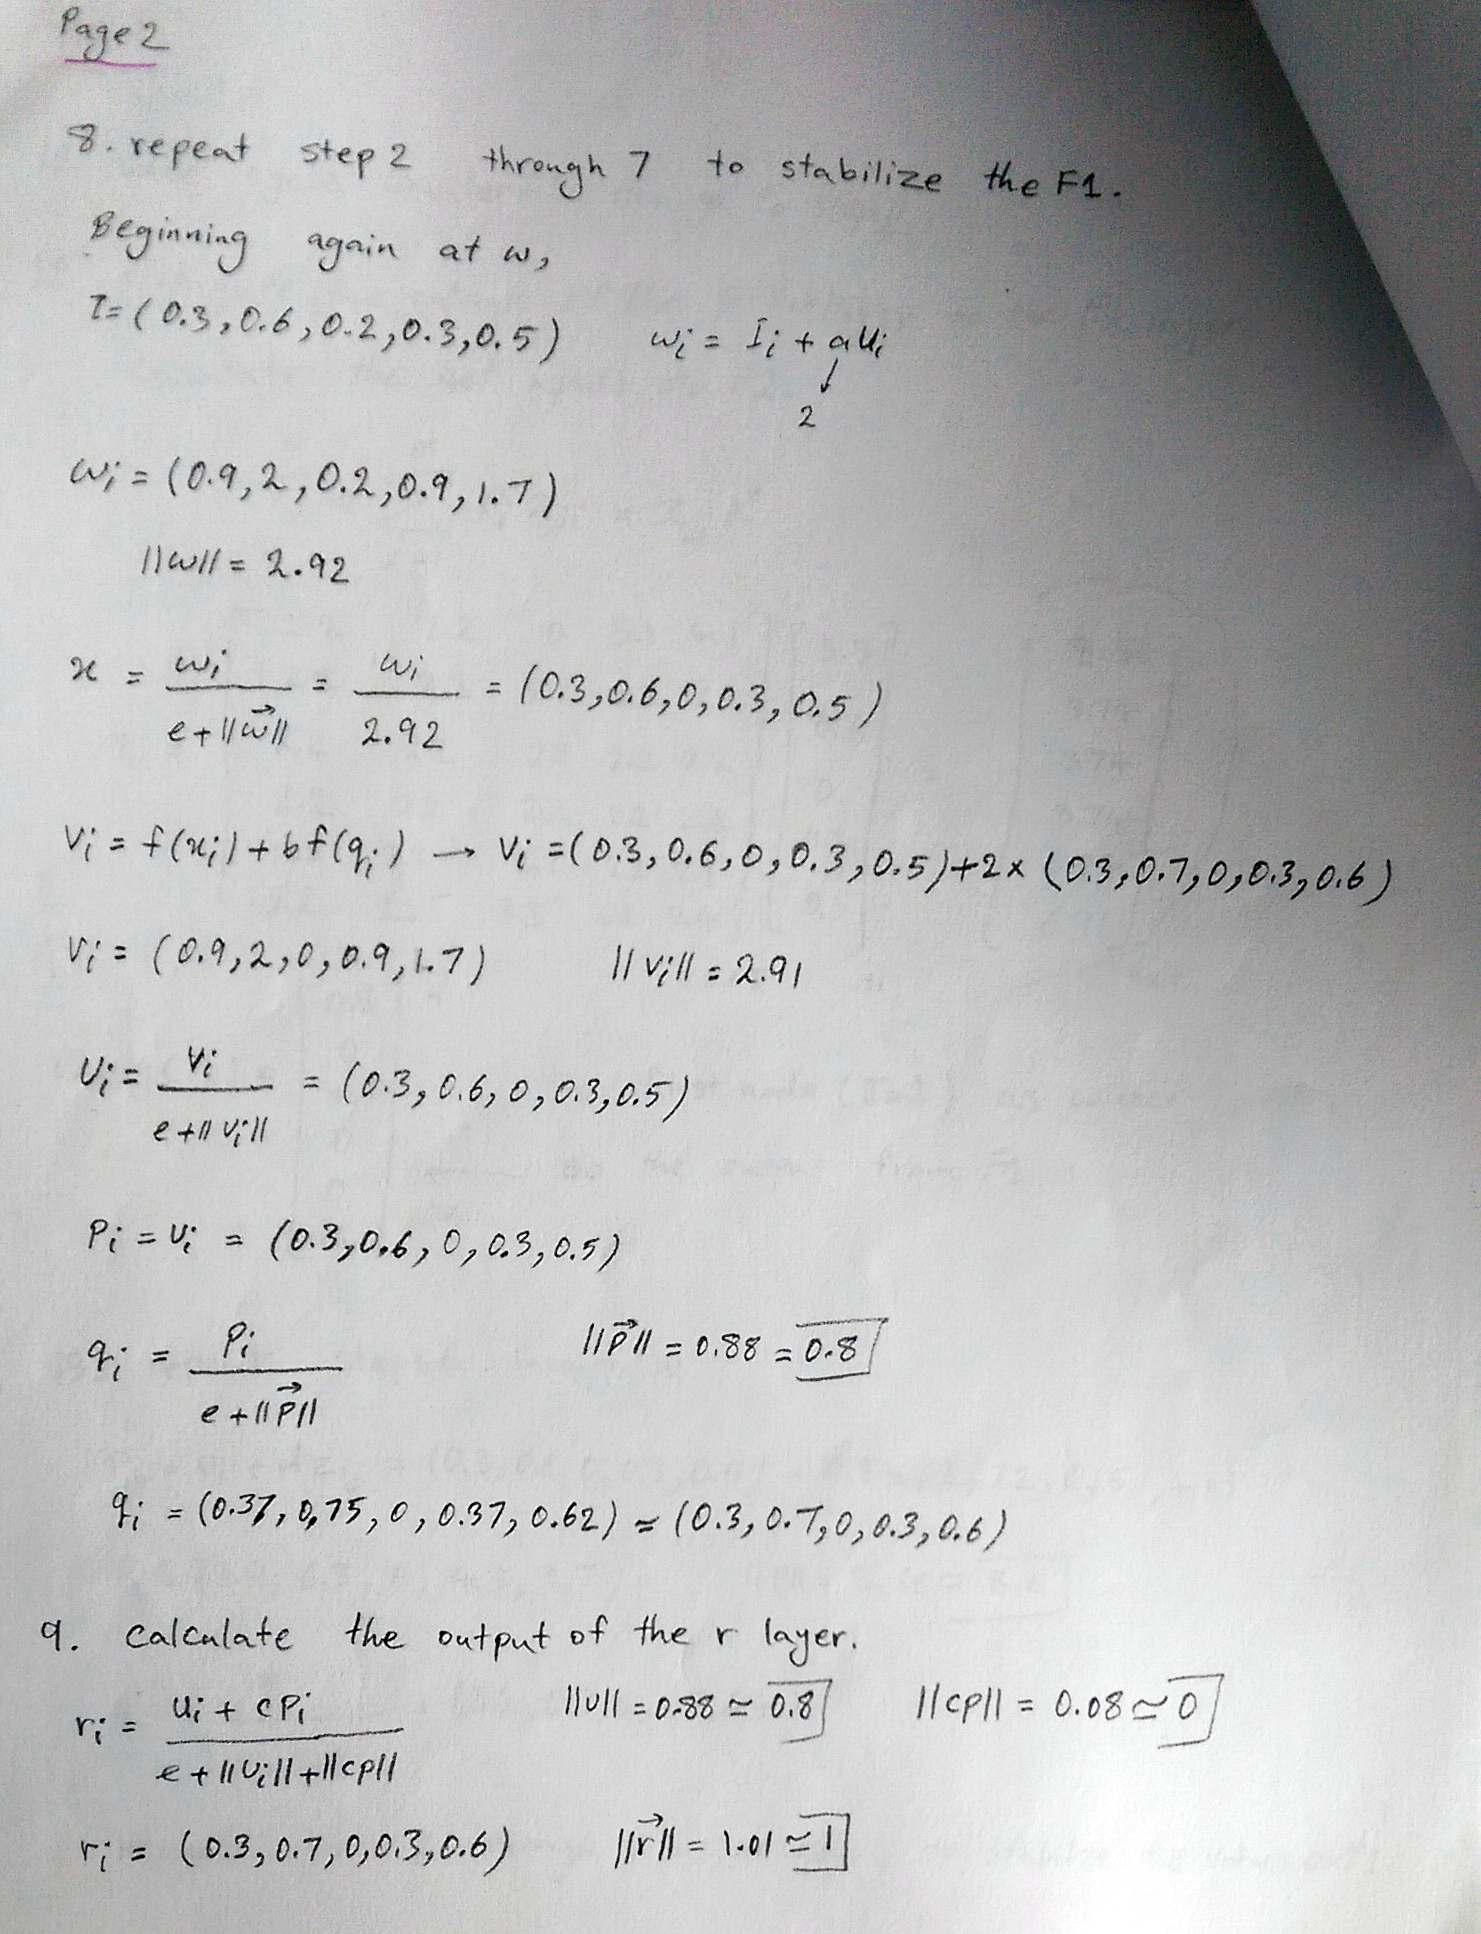 Page 2
8. repeat step 2 through 7 to stabilize the F1.
Beginning again at w,
I = (0.3, 0.6, 0.2, 0.3, 0.5) wi = Ii + aUi
↓
2
wi = (0.9, 2, 0.2, 0.9, 1.7)
||w|| = 2.92
x = wi / (e + ||w⃗||) = wi / 2.92 = (0.3, 0.6, 0, 0.3, 0.5)
Vi = f(xi) + bf(qi) → Vi = (0.3, 0.6, 0, 0.3, 0.5) + 2 × (0.3, 0.7, 0, 0.3, 0.6)
Vi = (0.9, 2, 0, 0.9, 1.7) ||Vi|| = 2.91
Ui = Vi / (e + ||Vi||) = (0.3, 0.6, 0, 0.3, 0.5)
Pi = Ui = (0.3, 0.6, 0, 0.3, 0.5)
qi = Pi / (e + ||P⃗||) ||P⃗|| = 0.88 = 0.8
qi = (0.37, 0.75, 0, 0.37, 0.62) ≈ (0.3, 0.7, 0, 0.3, 0.6)
9. calculate the output of the r layer.
ri = (Ui + cPi) / (e + ||Ui|| + ||cp||) ||U|| = 0.88 ≃ 0.8 ||cp|| = 0.08 ≃ 0
ri = (0.3, 0.7, 0, 0.3, 0.6) ||r⃗|| = 1.01 ≃ 1